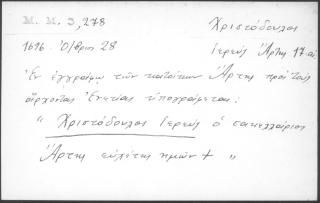 Μ. Μ. 3, 278 Χριστόδουλος
1616. Ὀ/βρίου 28 Ιερεύς Άρτης 17 αἰ.
Ἐν εγγράφῳ τῶν κατοίκων Άρτης πρὸς τοὺς
ἄρχοντας Ενετίας ὑπογράφεται:
" Χριστόδουλος Ιερεὺς ὁ σακελλάριος
Άρτης εὐχέτης ημῶν + "